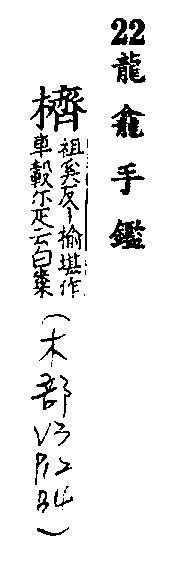 22龍龕手鑑
櫅
祖奚反榆堪作
車轂尒疋云白棗
(木部
V3
P12
84)